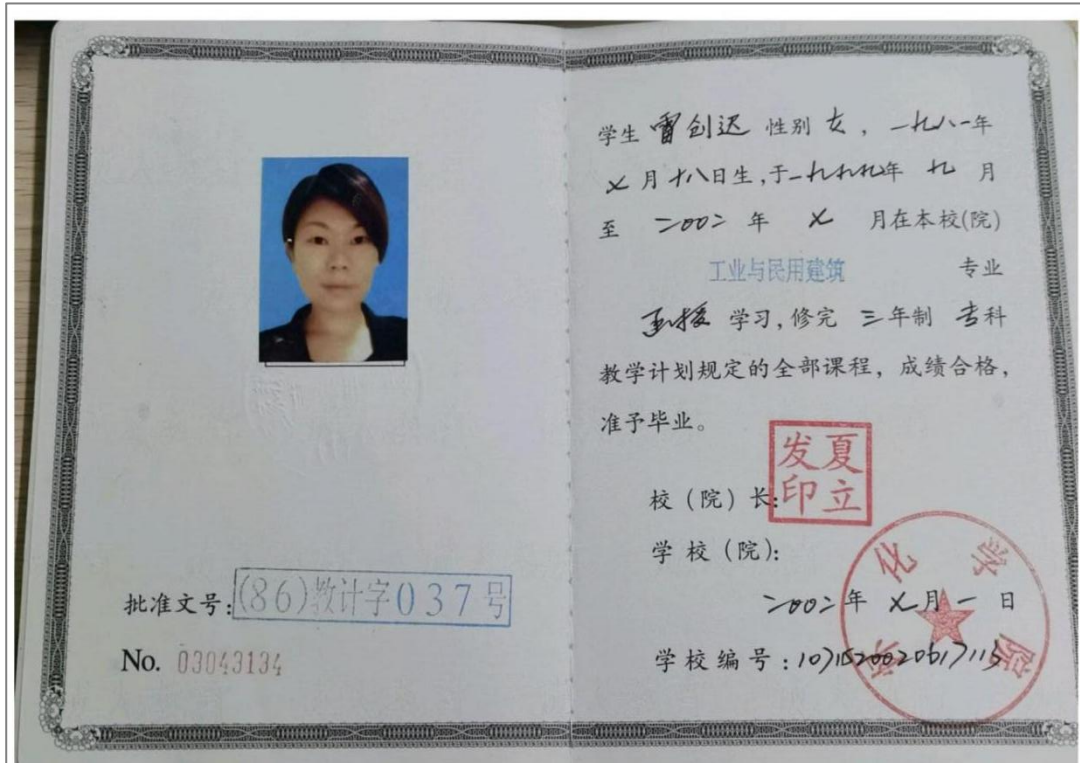 批准文号:(86)教计字037号
No. 03043134
学生 雷创迟 性别 女,一九八一年
七月十八日生,于一九九九年 九 月
至 二00二 年 七 月在本校(院)
工业与民用建筑 专业
函授 学习,修完 三年制 专科
教学计划规定的全部课程,成绩合格,
准予毕业。
校(院)长:
夏立发印
学校(院):
化 学 院
二00二年 七月 一 日
学校编号: